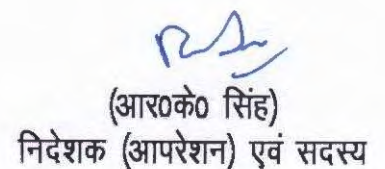 (आर०के० सिंह)
निदेशक (आपरेशन) एवं सदस्य